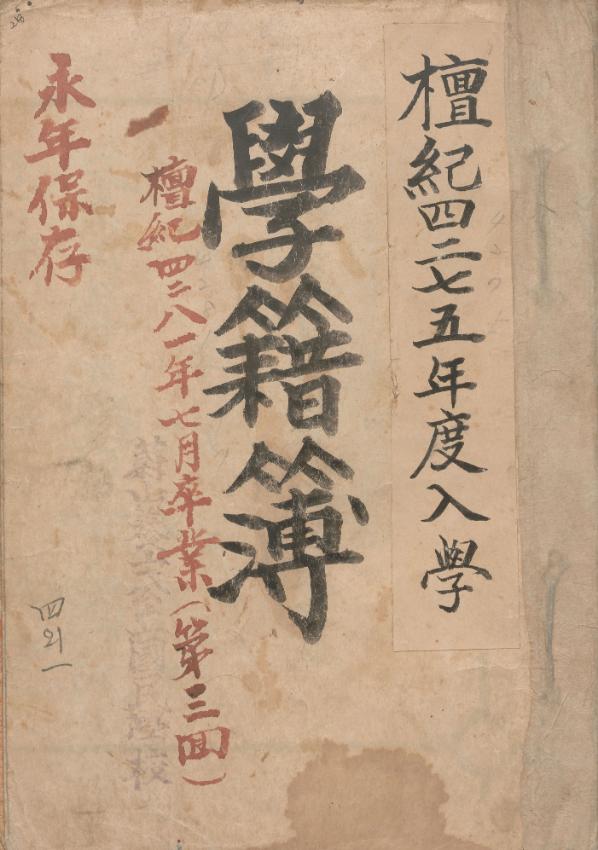 檀紀四二七五年度入學
學籍簿
檀紀四二八一年七月卒業(第三回)
永年保存
四의一